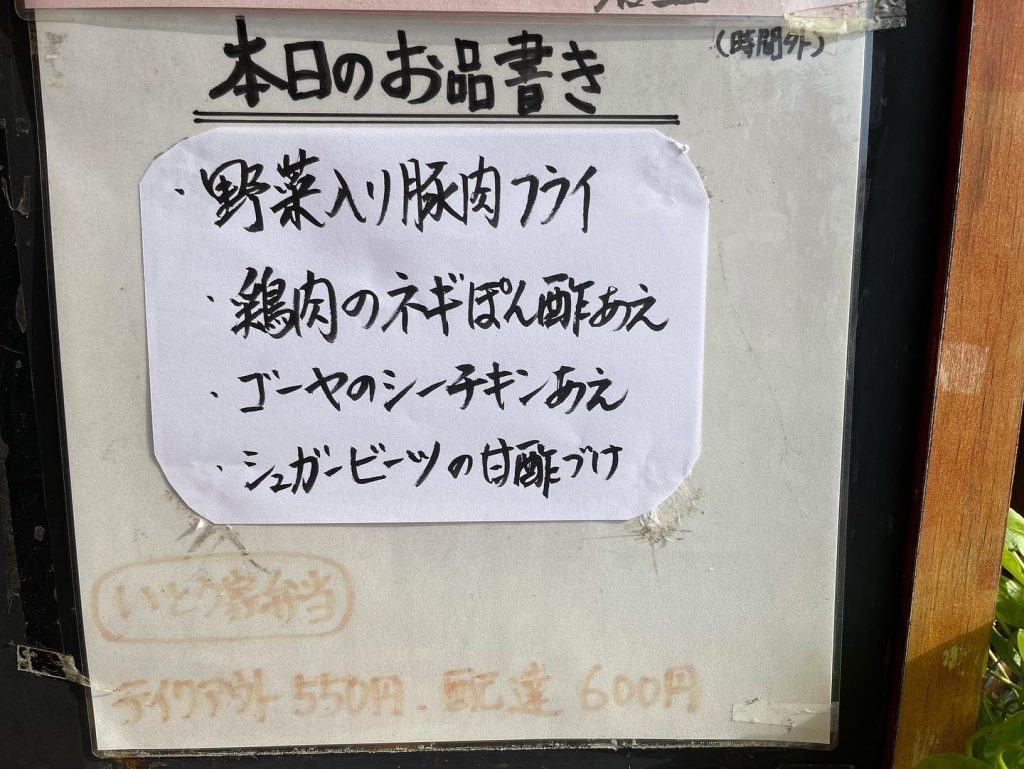 本日のお品書き
（時間外）
・野菜入り豚肉フライ
・鶏肉のネギぽん酢あえ
・ゴーヤのシーチキンあえ
・シュガービーツの甘酢づけ
いとう家弁当
テイクアウト 550円．配達 600円